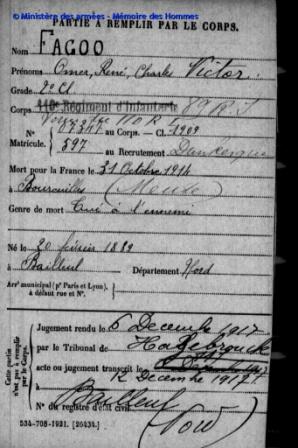 © Ministère des armées - Mémoire des Hommes
PARTIE À REMPLIR PAR LE CORPS.
Nom FAGOO
Prénoms Omer, René, Charles Victor.
Grade 2e Cl.
Corps 110e Régiment d'Infanterie 89 R.I
110 R I
N° au Corps. — Cl. 1909
Matricule. 597 au Recrutement Dunkerque
Mort pour la France le 31 Octobre 1914
à Boureuilles (Meuse)
Genre de mort Tué à l'ennemi
Né le 20 février 1889
à Bailleul Département Nord
Arrt municipal (pr Paris et Lyon),
à défaut rue et N°.
Cette partie
n'est pas à remplir
par le Corps.
Jugement rendu le 6 Décembre 1917
par le Tribunal de Hazebrouck
acte ou jugement transcrit le
12 Décembre 1917
à Bailleul
N° du registre d'état civil
Nord
534-708-1921. [26434.]